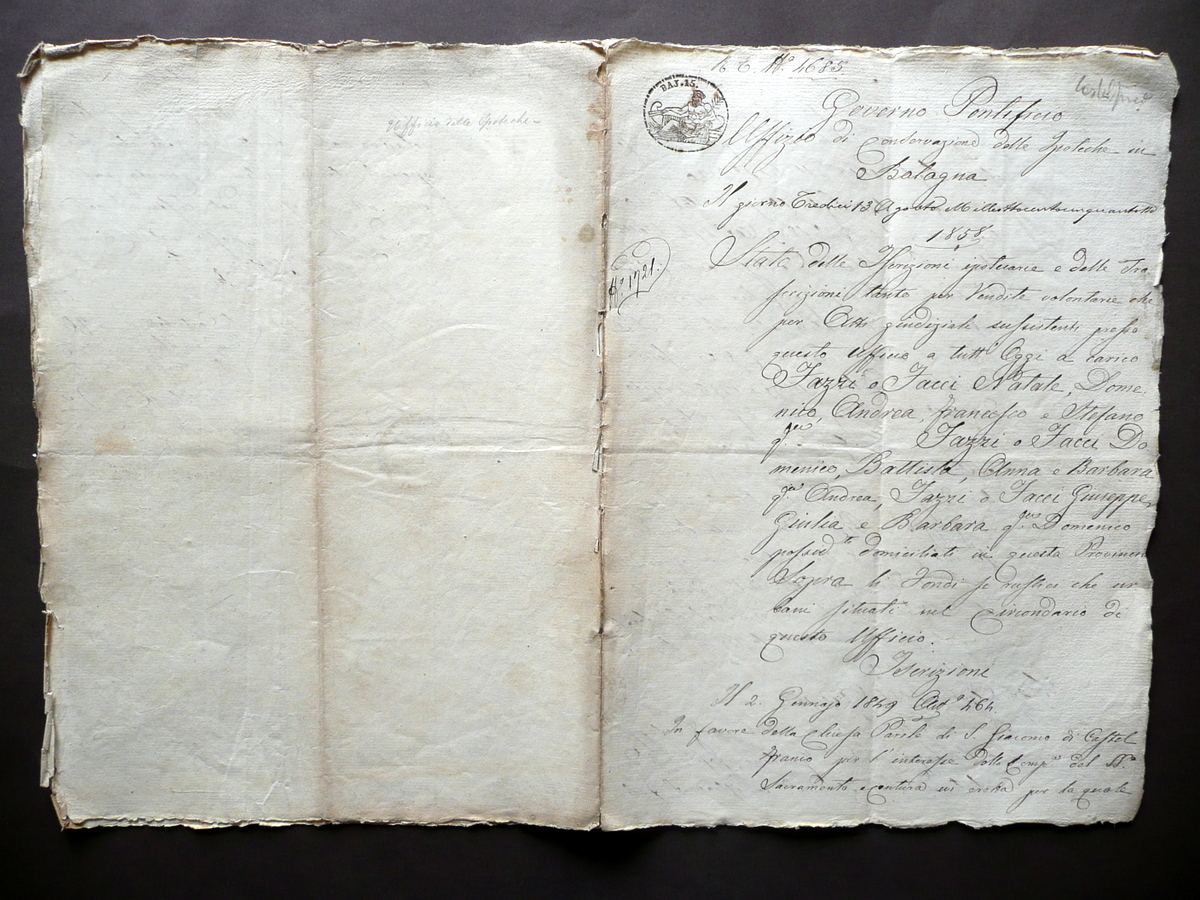 Uffizio delle Ipoteche
R. C. N.º 4685.
BAJ. 15.
Governo Pontificio
Uffizio di Conservazione delle Ipoteche in
Bologna
Il giorno Tredici 13 Agosto Milleottocentocinquantotto
1858.
N.º 1721.
Stato delle Iscrizioni ipotecarie e delle Tra
scrizioni tanto per Vendite volontarie che
per Atti giudiziali sussistenti presso
questo Ufficio a tutt' Oggi a carico
Fazzi o Facci Natale, Dome
nico, Andrea, Francesco e Stefano
q.m Fazzi o Facci Do
menico, Battista, Anna e Barbara
q.m Andrea, Fazzi o Facci Giuseppe,
Giulia e Barbara q.m Domenico
possid.ti domiciliati in questa Provincia
Sopra li Fondi sì rustici che ur
bani situati nel Circondario di
questo Ufficio.
Iscrizioni
Il 2. Gennajo 1849 Art.º 464.
In favore della Chiesa Parr.le di S. Giacomo di Castel
franco per l'interesse della Comp.a del SS.º
Sacramento e Centura ivi eretta per la quale